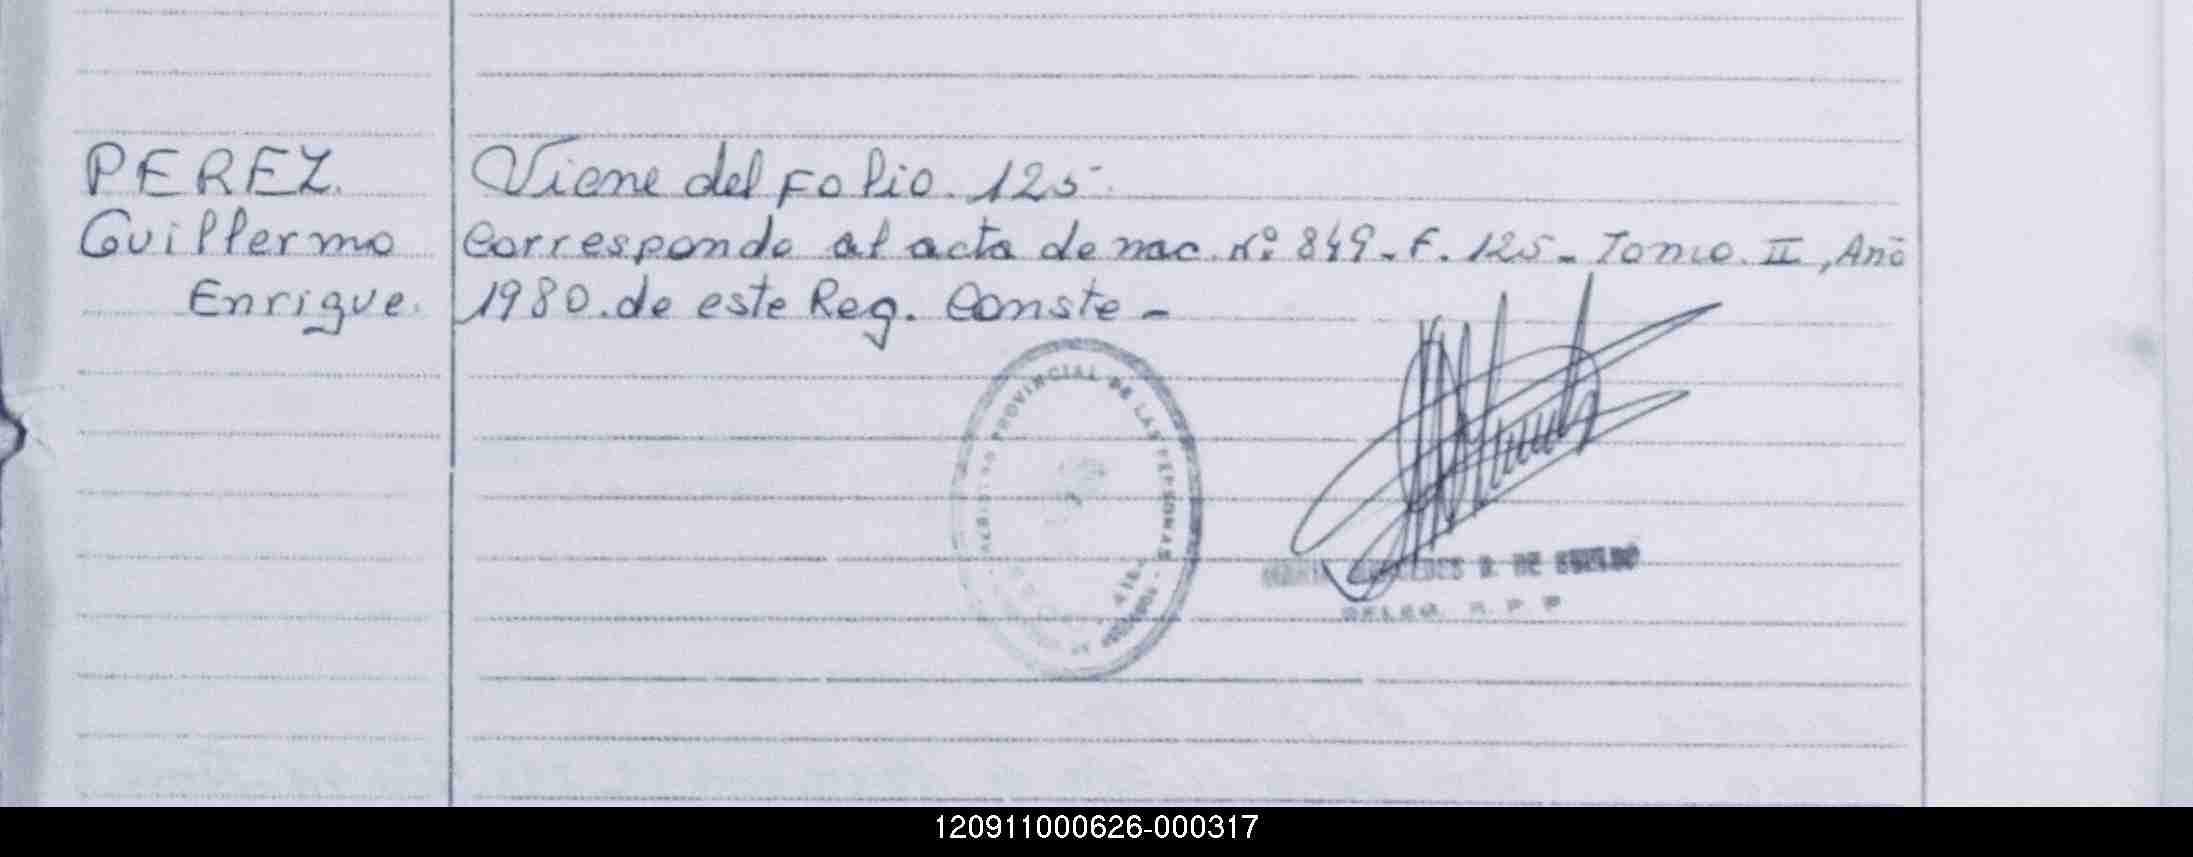 PEREZ.
Guillermo
Enrique.
Viene del Folio. 125.
Corresponde al acta de nac. Nº 849 - F. 125 - Tomo. II, Año
1980. de este Reg. Conste -
PROVINCIAL DE LAS PERSONAS
DE
DELEG. R. P. P
120911000626-000317